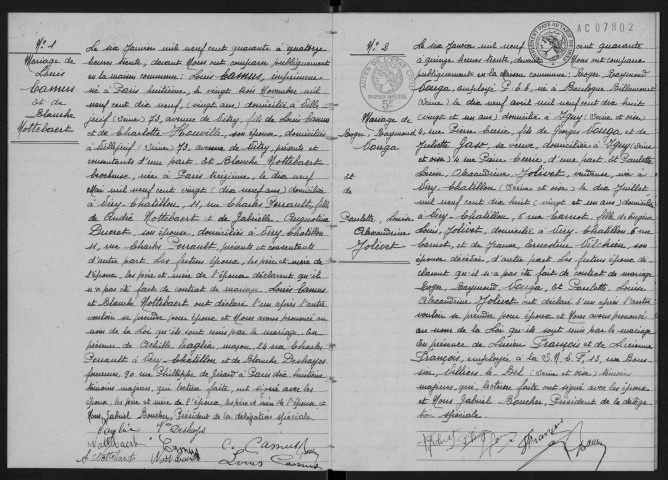 N° 1
Mariage de
Louis
Camus
et de
Blanche
Wottebaert
Le six Janvier mil neuf cent quarante à quatorze
heures trente, devant Nous ont comparu publiquement
en la maison commune : Louis Camus, imprimeur
né à Paris huitième, le vingt trois Novembre mil
neuf cent dix neuf, (vingt ans) domicilié à Ville
juif (Seine) 73, avenue de Vitry, fils de Louis Camus
et de Charlotte son épouse, domiciliés
à Villejuif (Seine) 73, avenue de Vitry, présents et
consentants d'une part. Et Blanche Wottebaert
brocheuse, née à Paris treizième, le dix neuf
Mai mil neuf cent vingt (dix neuf ans) domiciliée
à Viry-Chatillon, 11, rue Charles Perrault, fille
de André Wottebaert et de Gabrielle Augustine
Ducrot, son épouse, domiciliés à Viry Chatillon
11, rue Charles Perrault, présents et consentants
d'autre part. Les futurs époux, les père et mère de
l'époux, les père et mère de l'épouse déclarent qu'il
n'a pas été fait de contrat de mariage. Louis Camus
et Blanche Wottebaert ont déclaré l'un après l'autre
vouloir se prendre pour époux et Nous avons prononcé au
nom de la Loi qu'ils sont unis par le mariage. En
présence de Achille maçon, 24 rue Charles
Perrault à Viry-Chatillon et de Blanche Deshayes
90 rue Philippe de Girard à Paris dix huitième
témoins majeurs, qui lecture faite, ont signé avec les
époux, les père et mère de l'époux, les père et mère de l'épouse et
Nous, Gabriel Boucher, Président de la délégation spéciale.
Deshays
Wottebaert Camus C. Camus
A. Wottebaert Wottebaert Louis Camus
AC 07802
N° 2
Mariage de
Roger, Raymond
Vouga
et
de
Paulette, Louise
Alexandrine
Jolivet
Le six Janvier mil neuf cent quarante
à quinze heures trente, devant Nous ont comparu
publiquement en la Maison commune : Roger, Raymond
Vouga, employé né à Boulogne Billancourt
(Seine) le dix avril mil neuf cent dix huit
(vingt et un ans) domicilié à Igny (Seine et Oise)
4, rue Pierre fils de Georges Vouga et de
Juliette Gast, sa veuve, domiciliée à Igny (Seine
et Oise) 4, rue Pierre d'une part. Et Paulette
Louise Alexandrine Jolivet, vendeuse, née à
Viry-Chatillon (Seine et Oise) le dix Juillet
mil neuf cent dix huit (vingt et un ans) domiciliée
à Viry-Chatillon, 6 rue Carnot, fille de Eugène
Louis Jolivet, domicilié à Viry-Chatillon, 6 rue
Carnot, et de Jeanne Ernestine son
épouse décédée, d'autre part. Les futurs époux dé-
clarent qu'il n'a pas été fait de contrat de mariage
Roger, Raymond, Vouga et Paulette, Louise
Alexandrine Jolivet ont déclaré l'un après l'autre
vouloir se prendre pour époux et Nous avons prononcé
au nom de la Loi qu'ils sont unis par le mariage
En présence de Lucien François et de Lucienne
François, employés à la S.N.C.F, 13, rue
Villiers le Bel (Seine et Oise) témoins
majeurs, qui, lecture faite ont signé avec les époux
et Nous Gabriel Boucher, Président de la déléga-
tion spéciale.
François